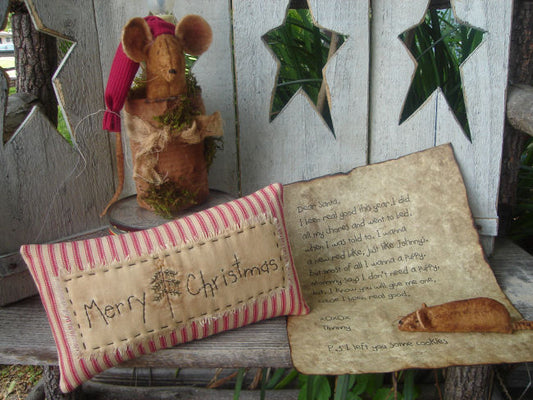 Merry Christmas
Dear Santa,
I been real good this year. I did
all my chores and went to bed
when I was told to. I want a
a new red bike, just like Johnny,
but most of all I want a puppy.
Mommy says I don't need a puppy,
but I know you will give me one,
cause I been real good.
XOXO
Timmy
P.S. I left you some cookies